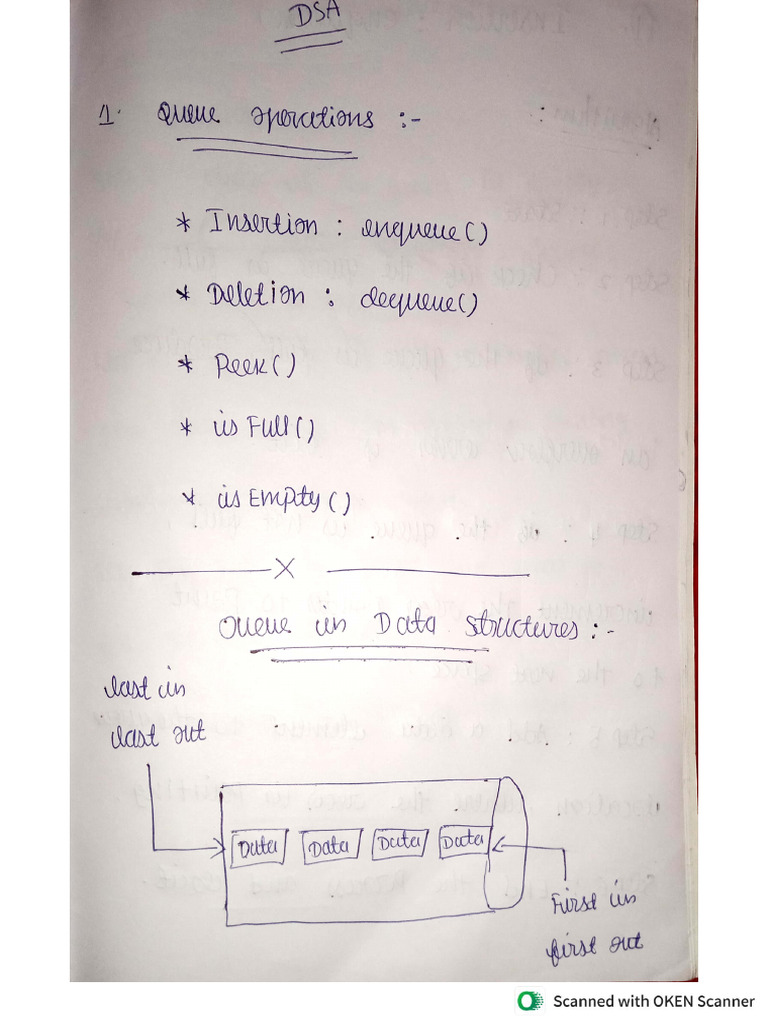 DSA
1. Queue operations :-
* Insertion : enqueue()
* Deletion : dequeue()
* Peek()
* isFull()
* isEmpty()
X
Queue in Data structures :-
last in
last out
Data Data Data Data
First in
first out
Scanned with OKEN Scanner